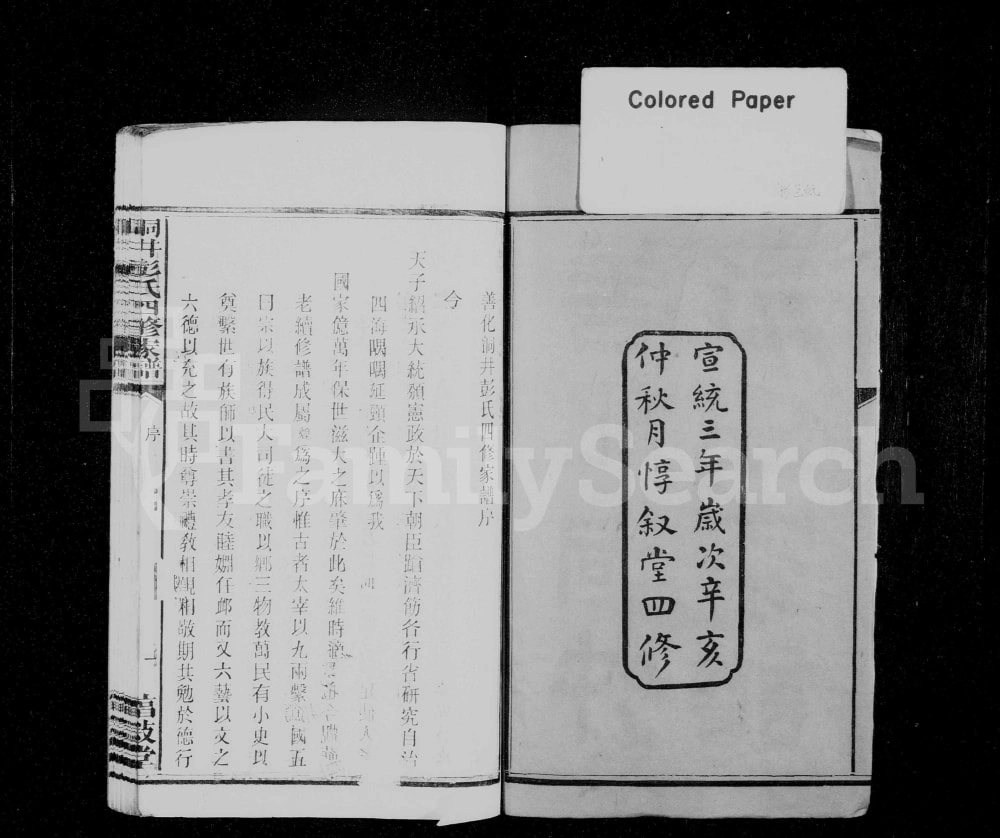 Colored Paper
宣統三年歲次辛亥
仲秋月惇叙堂四修
善化澗井彭氏四修家譜序
今
天子紹承大統頒憲政於天下朝臣蹌濟飭各行省研究自治
四海喁喁延頸企踵以爲我
國家億萬年保世滋大之庥肇於此矣維時
老續修譜成屬 爲之序惟古者太宰以九兩繫萬國五
曰宗以族得民大司徒之職以鄉三物教萬民有小史以
奠繫世有族師以書其孝友睦婣任卹而又六藝以文之
六德以充之故其時尊崇禮教相觀相敬期其勉於德行
澗井彭氏四修家譜
序
一
FamilySearch